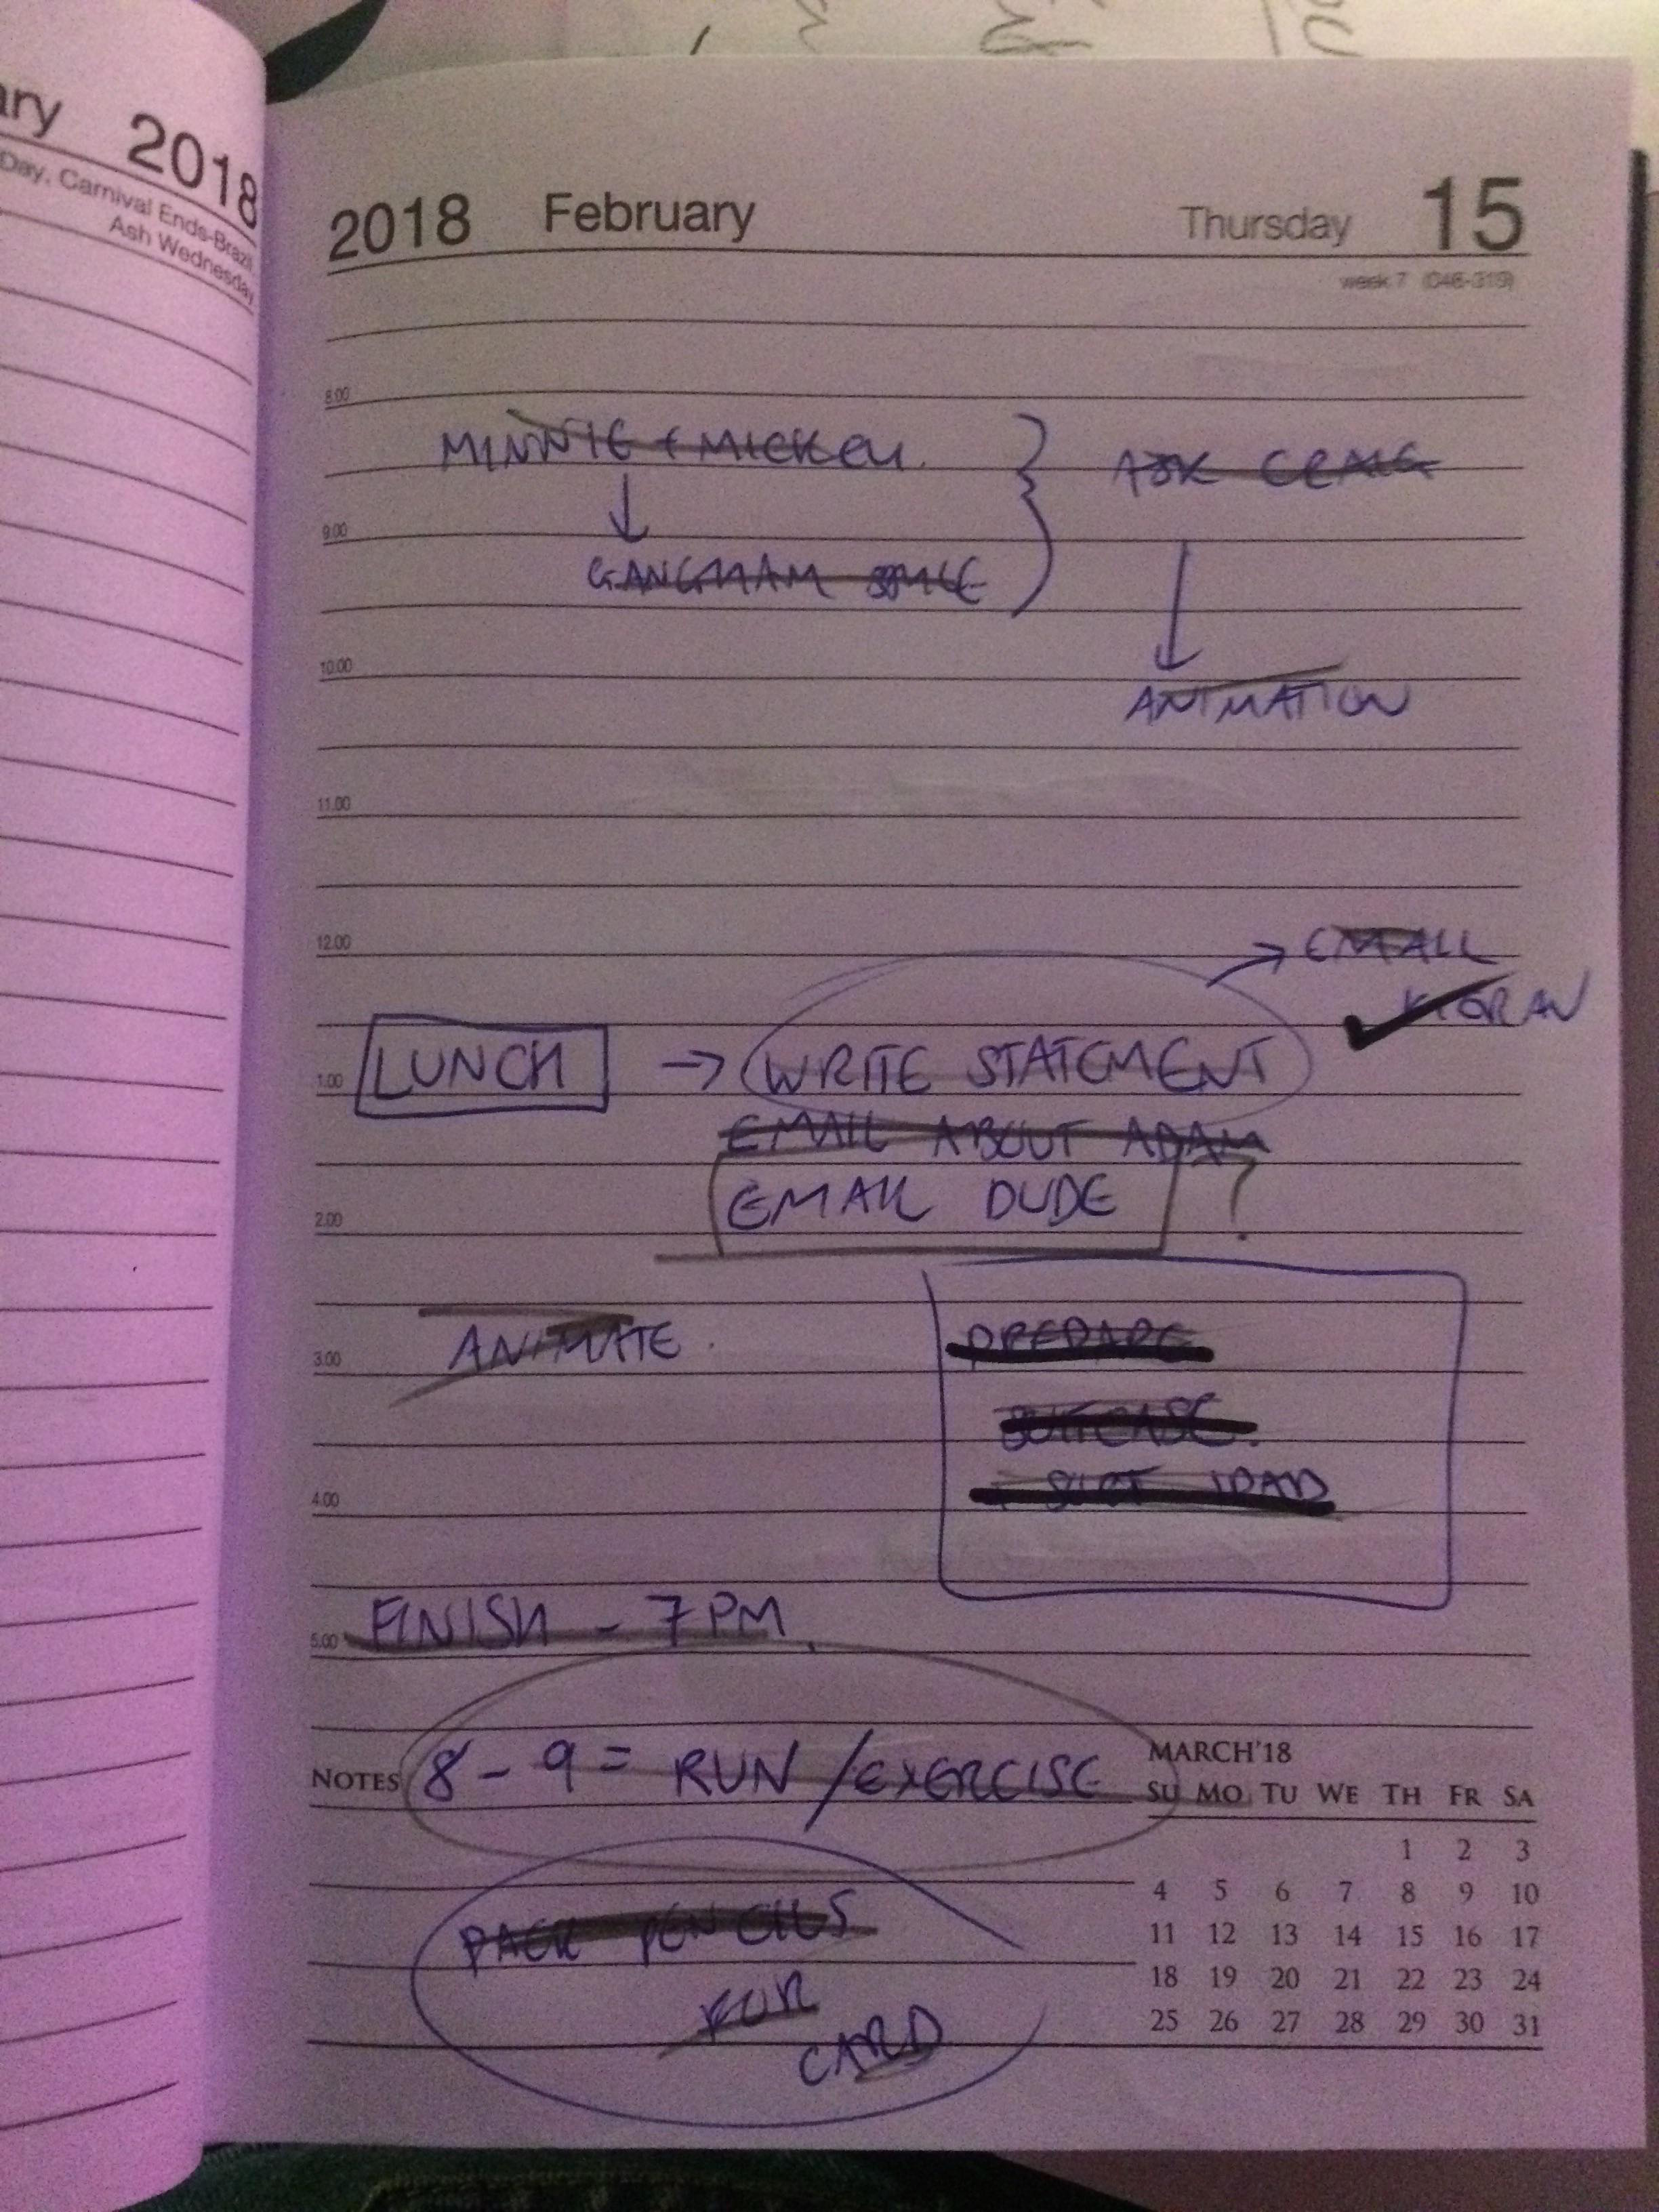 2018
Day, Carnival Ends-Brazil,
Ash Wednesday
2018 February Thursday 15
week 7 (046-319)
8.00
MINNIE + MICKEY.
ASK CRAIG
9.00
GANGNAM STYLE
10.00
ANIMATION
11.00
12.00
EMAIL
KIERAN
LUNCH → WRITE STATEMENT
1.00
EMAIL ABOUT ADAM
EMAIL DUDE ?
2.00
PREPARE
ANIMATE.
3.00
SUITCASE.
+ IPAD
4.00
FINISH - 7PM.
5.00
NOTES 8-9 = RUN / EXERCISE
MARCH'18
SU MO TU WE TH FR SA
1 2 3
4 5 6 7 8 9 10
11 12 13 14 15 16 17
18 19 20 21 22 23 24
25 26 27 28 29 30 31
PACK PENCILS
FOR
CARD